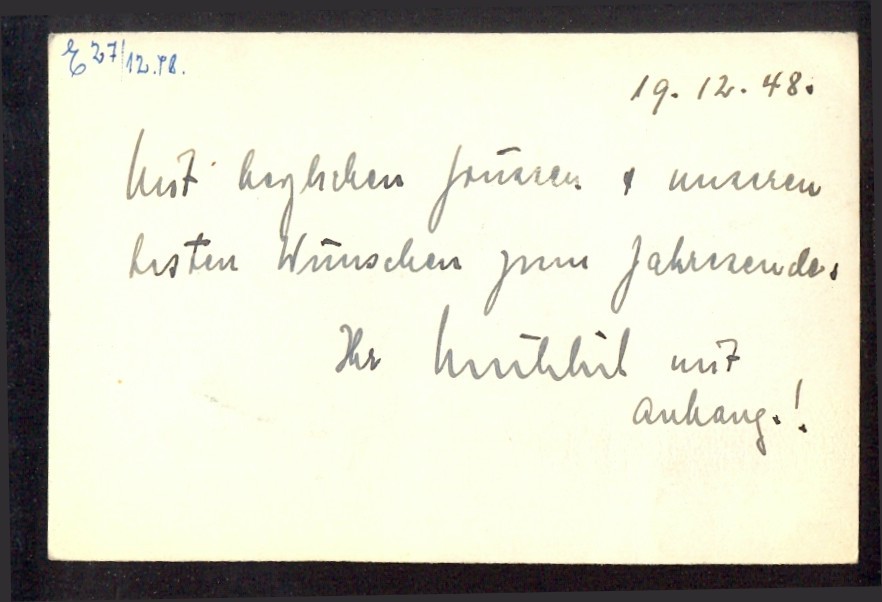 E 27/12.48.
19. 12. 48.
Mit herzlichen Grüssen & unseren
besten Wünschen zum Jahresende.
Ihr mit
Anhang.!